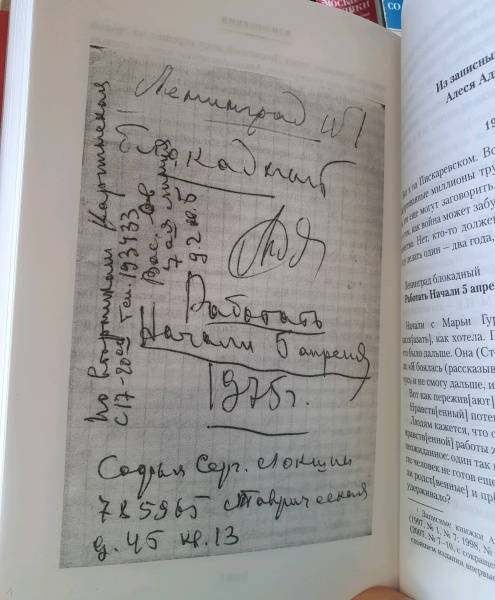 МОСКО
СО
Ленинград №1
Блокадный
Работать
Начали 5 апреля
1975г.
по вторникам
с 17-20 тел. 193433
Вас. Ов
7 ая линия
Софья Серг. Локшин
785965 Таврическая
д. 45 кв. 13
Из записны
Алеся Ад
19
на Пискаревском. Вс
миллионы тру
еще могут заговорить
как война может забу
Нет, кто-то долже
делать один – два года,
Ленинград блокадный
Работать Начали 5 апре
Начали с Марьи Гур
как хотела. П
что было дальше. Она (Ст
«Я боялась (рассказыв
и не смогу дальше, и
Вот как пережив[ают]
Нравств[енный] потен
Людям кажется, что с
нравств[енной] работы ж
неожиданное: один так
человек не готов еще
родст[венные] и пр
удерживало?
¹ Записные книжки А.
(1997, № 1, № 7; 1998, №
(2007, № 7–10, с сокраще
издании впервые